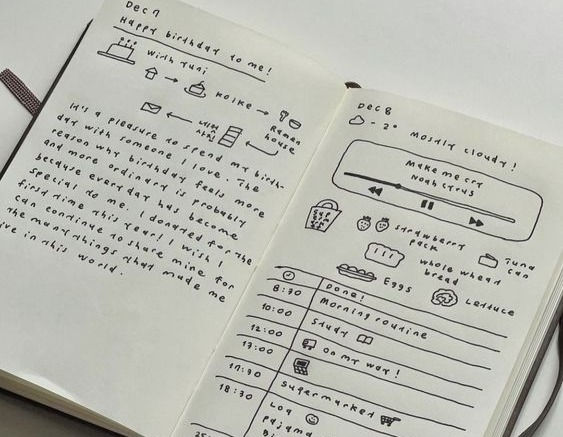 Dec 7
Happy birthday to me!
with Yuni
KOIKE
Ramen
house
네컷
사진
It's a pleasure to spend my birth-
day with someone I love. The
reason why birthday feels more
and more ordinary is probably
because everyday has become
special to me. I donated for the
first time this year! I wish I
can continue to share mine for
the many things that made me
live in this world.
Dec 8
- 2°
Mostly cloudy!
Make me cry
Noah Cyrus
Strawberry
pack
Tuna
can
whole wheat
bread
Eggs
Lettuce
Done!
8:30 Morning routine
10:00 Study
12:00 On my way!
13:00
17:30 Supermarket
18:30 Log
Pajama